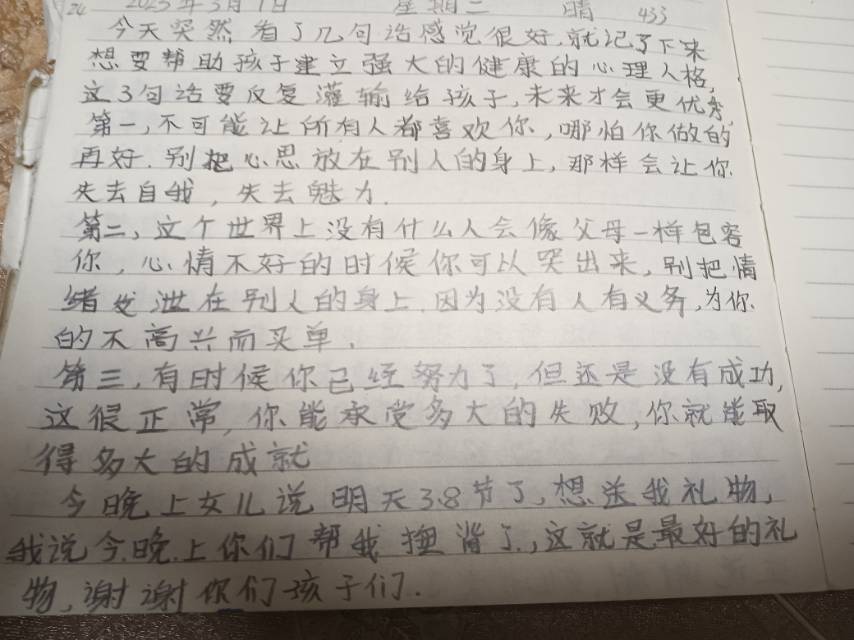 24 2025年3月7日 星期二 晴 433
今天突然看了几句话感觉很好,就记了下来
想要帮助孩子建立强大的健康的心理人格,
这3句话要反复灌输给孩子,未来才会更优秀,
第一,不可能让所有人都喜欢你,哪怕你做的
再好.别把心思放在别人的身上,那样会让你
失去自我,失去魅力.
第二,这个世界上没有什么人会像父母一样包容
你,心情不好的时候你可以哭出来,别把情
绪发泄在别人的身上.因为没有人有义务,为你
的不高兴而买单.
第三,有时候你已经努力了,但还是没有成功,
这很正常,你能承受多大的失败,你就能取
得多大的成就
今晚上女儿说明天3.8节了,想送我礼物,
我说今晚上你们帮我揰背了,这就是最好的礼
物,谢谢你们孩子们.